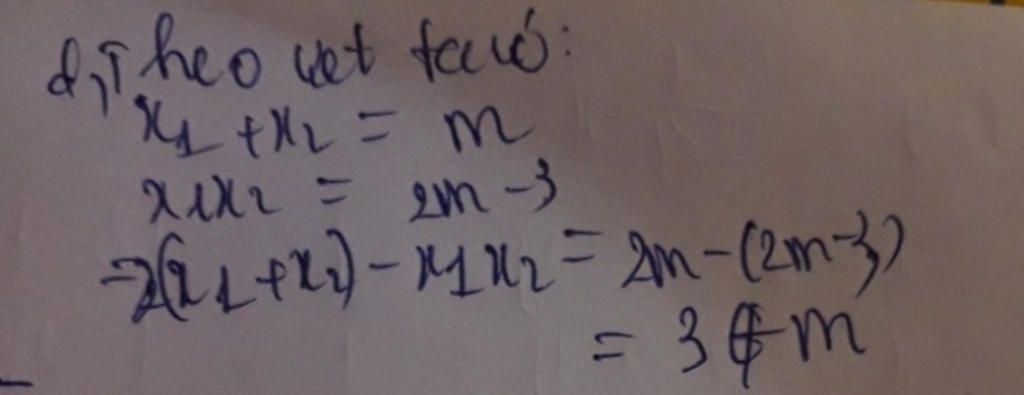 d, Theo vet ta có:
x1 + x2 = m
x1x2 = 2m - 3
⇒ 2(x1 + x2) - x1x2 = 2m - (2m - 3)
= 3 ∉ m